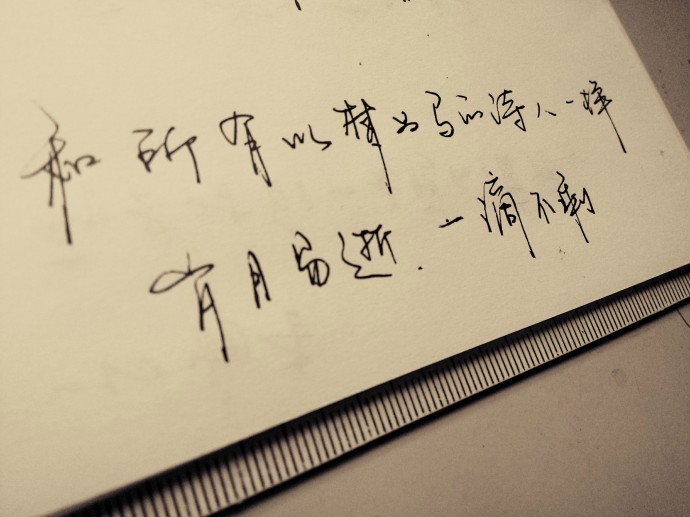 和所有以梦为马的诗人一样
岁月易逝.一滴不剩